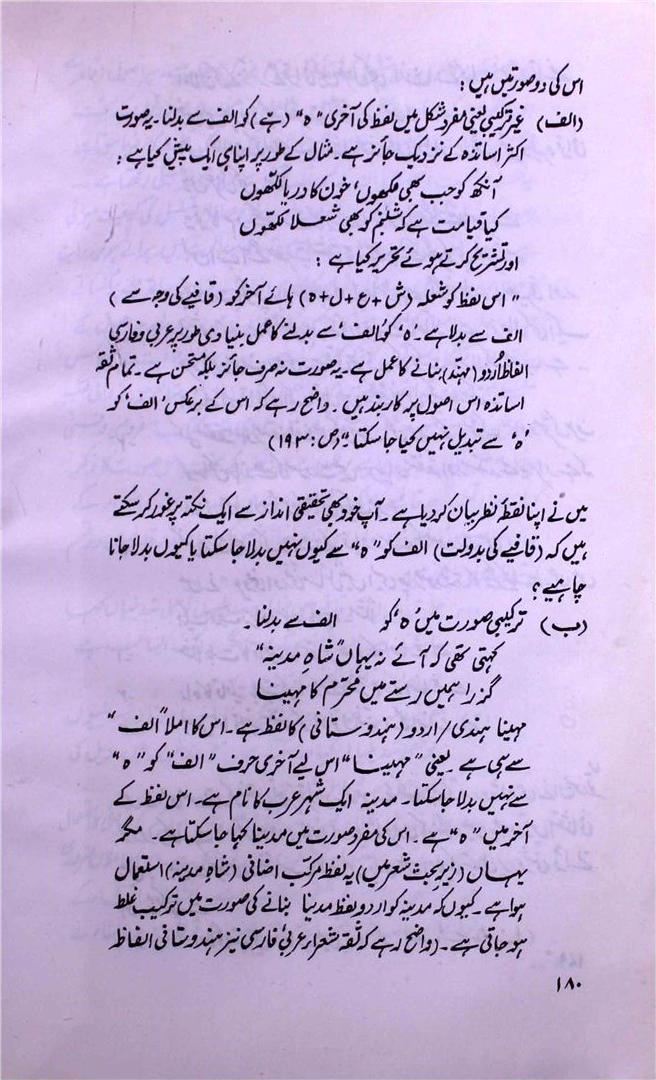 اس کی دو صورتیں ہیں :
(الف) غیر ترکیبی یعنی مفرد شکل میں لفظ کی آخری "ہ" (ہے) کو الف سے بدلنا۔ یہ صورت
اکثر اساتذہ کے نزدیک جائز ہے۔ مثال کے طور پر اپنا ہی ایک پیش کیا ہے :
آنکھ کو جب بھی لکھوں، خون کا دریا لکھوں
کیا قیامت ہے کہ شبنم کو بھی شعلا لکھوں
اور تشریح کرتے ہوئے تحریر کیا ہے :
" اس لفظ کو شعلہ (ش + ع + ل + ہ) ہائے آخر کو (قافیے کی وجہ سے)
الف سے بدلا ہے۔ 'ہ' کو 'الف' سے بدلنے کا عمل بنیادی طور پر عربی و فارسی
الفاظ اُردو (مہند) بنانے کا عمل ہے۔ یہ صورت نہ صرف جائز بلکہ مستحسن ہے۔ تمام ثقہ
اساتذہ اس اصول پر کاربند ہیں۔ واضح رہے کہ اس کے برعکس 'الف' کو
'ہ' سے تبدیل نہیں کیا جا سکتا۔" (ص: ۱۹۳)
میں نے اپنا نقطۂ نظر بیان کر دیا ہے۔ آپ خود بھی تحقیقی انداز سے ایک نکتہ پر غور کر سکتے
ہیں کہ (قافیے کی بدولت) الف کو "ہ" سے کیوں نہیں بدلا جا سکتا یا کیوں بدلا جانا
چاہیے ؟
(ب) ترکیبی صورت میں 'ہ' کو الف سے بدلنا۔
کہتی تھی کہ آئے نہ یہاں "شاہِ مدینہ"
گزرا ہمیں رستے میں محترم کا مہینا
مہینا ہندی / اردو (ہندوستانی) کا لفظ ہے۔ اس کا املا "الف"
سے ہی ہے یعنی "مہینا" اس لیے آخری حرف "الف" کو "ہ"
سے نہیں بدلا جا سکتا۔ مدینہ ایک شہرِ عرب کا نام ہے۔ اس لفظ کے
آخر میں "ہ" ہے۔ اس کی مفرد صورت میں مدینا کہا جا سکتا ہے۔ مگر
یہاں (زیرِ بحث شعر میں) یہ لفظ مرکب اضافی (شاہِ مدینہ) استعمال
ہوا ہے۔ کیوں کہ مدینہ کو اردو لفظ مدینا بنانے کی صورت میں ترکیب غلط
ہو جاتی ہے۔ (واضح رہے کہ ثقہ شعراء عربی فارسی نیز ہندوستانی الفاظ
۱۸۰